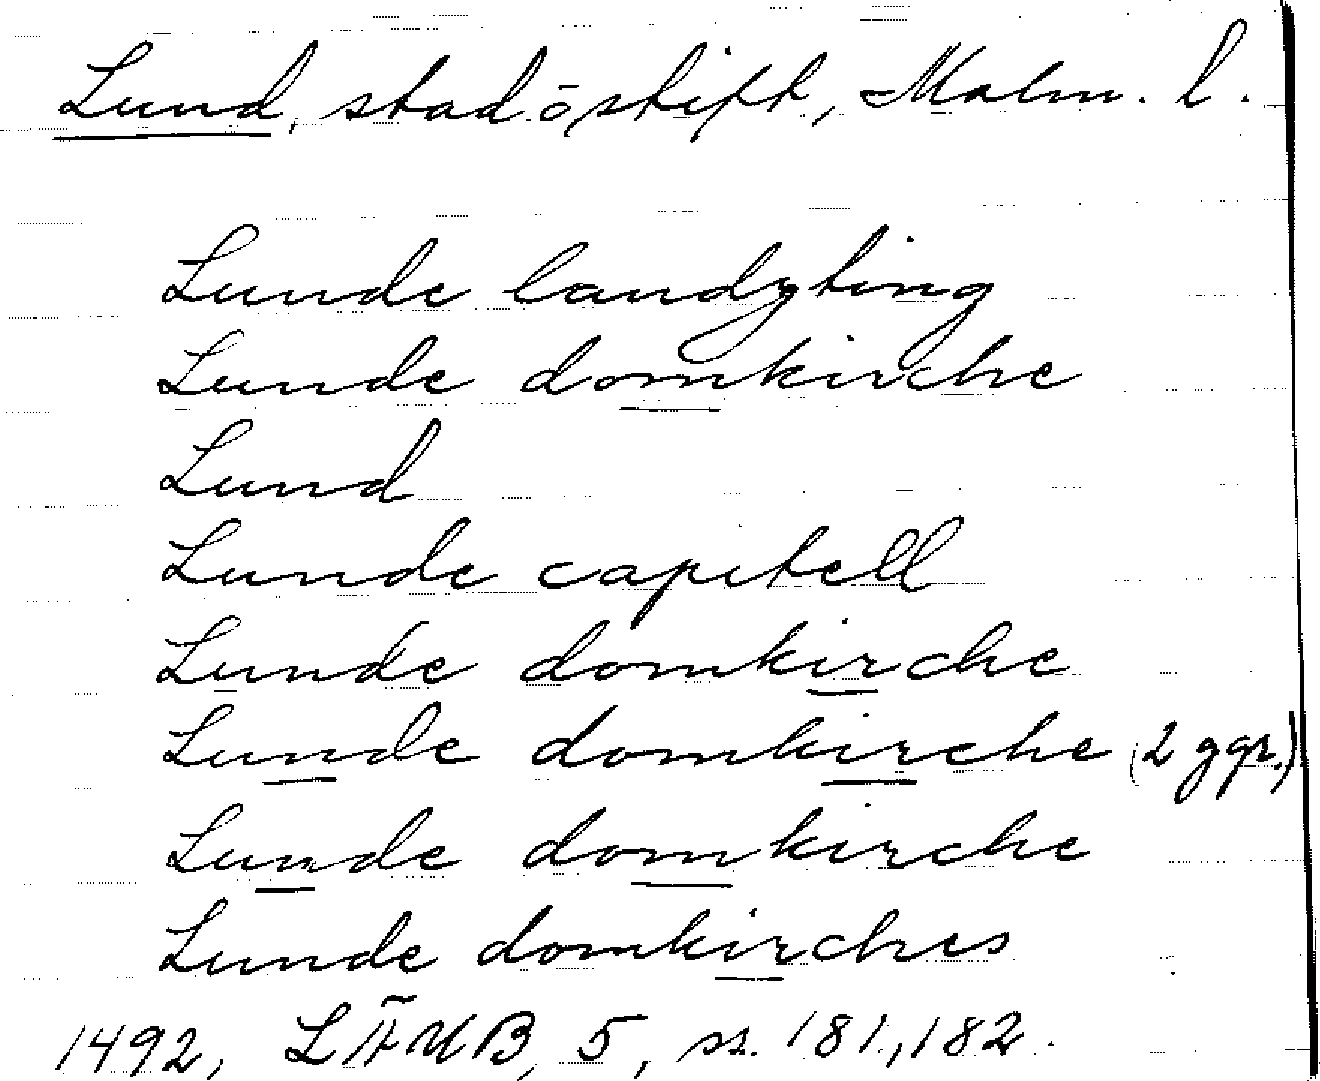 Lund, stad o stift, Malm. l.
Lunde landzting
Lunde domkirche
Lund
Lunde capitell
Lunde domkirche
Lunde domkirche (2 ggr.)
Lunde domkirche
Lunde domkirches
1492, LÄUB, 5, ss. 181, 182.